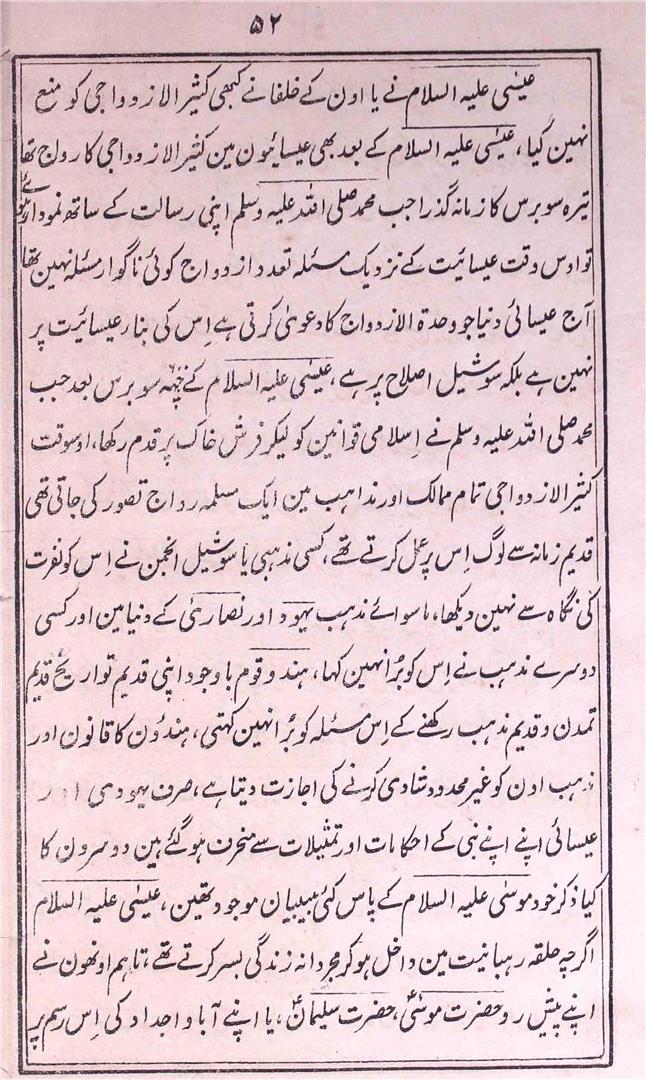 ۵۲
عیسٰی علیہ السلام نے یا اون کے خلفا نے کبھی کثیر الازدواجی کو منع
نہین کیا، عیسٰی علیہ السلام کے بعد بھی عیسائیون مین کثیر الازدواجی کا رواج تھا
تیرہ سو برس کا زمانہ گذرا جب محمد صلی اللہ علیہ وسلم اپنی رسالت کے ساتھ نمودار ہوئے
تو اوس وقت عیسائیت کے نزدیک مسئلہ تعدد ازدواج کوئی ناگوار مسئلہ نہین تھا
آج عیسائی دنیا جو وحدۃ الازدواج کا دعویٰ کرتی ہے اِس کی بنا ر عیسائیت پر
نہین ہے بلکہ سوشیل اصلاح پر ہے، عیسٰی علیہ السلام کے چھہ سو برس بعد جب
محمد صلی اللہ علیہ وسلم نے اِسلامی قوانین کو لیکر فرش خاک پر قدم رکھا، اوسوقت
کثیر الازدواجی تمام ممالک اور مذاہب مین ایک مسلمہ رواج تصور کی جاتی تھی
قدیم زمانہ سے لوگ اِس پر عمل کرتے تھے، کسی مذہبی یا سوشیل انجمن نے اِس کو نفرت
کی نگاہ سے نہین دیکھا، ماسوائے مذہب یہود اور نصاریٰ کے دنیا مین اور کسی
دوسرے مذہب نے اِس کو بُرا نہین کہا، ہندو قوم باوجود اپنی قدیم تواریخ قدیم
تمدن و قدیم مذہب رکھنے کے اِس مسئلہ کو بُرا نہین کہتی، ہندؤن کا قانون اور
مذہب اون کو غیر محدود شادی کرنے کی اجازت دیتا ہے، صرف یہودی اور
عیسائی اپنے اپنے نبی کے احکامات اور تمثیلات سے منحرف ہو گئے ہین دوسرون کا
کیا ذکر خود موسٰی علیہ السلام کے پاس کئی بیبیان موجود تھین، عیسٰی علیہ السلام
اگرچہ حلقہ رہبانیت مین داخل ہو کر مجردانہ زندگی بسر کرتے تھے، تاہم اونھون نے
اپنے پیش رو حضرت موسٰیؑ، حضرت سلیمانؑ، یا اپنے آبا و اجداد کی اِس رسم پر